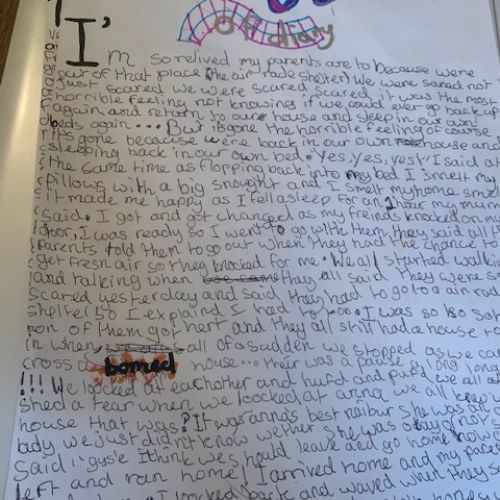 of diary
I'm so relived my parents are to because were
out of that place (the air rade shelter) we were scared not
just scared we were scared, scared it was the most
horrible feeling not knowing if we could ever go back up
again and return to our house and sleep in our own
beds again... But is gone the horrible feeling of course
it's gone because were back in our own house and
sleeping back in our own bed. Yes, yes, yes I said at
the same time as flopping back into my bed I smelt my
pillows with a big snought and I smelt my home smell
it made me happy as I fell asleep for an 1 hour my mum
said. I got and got changed as my freinds knocked on my
door, I was ready so I went to go with them they said all
parents told them to go out when they had the chance to
get fresh air so they knocked for me. We all started walking
and talking when they all said they were so
scared yesterday and said they had to go to a air rade
shelter so I explaind I had to too. I was so so
on of them got hert and they all still had a house to
in when all of a sudden we stopped as we ca
cross a bomed house... their was a pause a long long
!!! We loocked at eachother and and we all
shed a tear when we loocked at anna we all knew
house that was? It was annas best neibur she was an
lady we just didn't know wether she was okay or not
Said, 'guys I think we should leave and go home now
left and ran home! I arrived home and my pare
I loocked back and waved when they